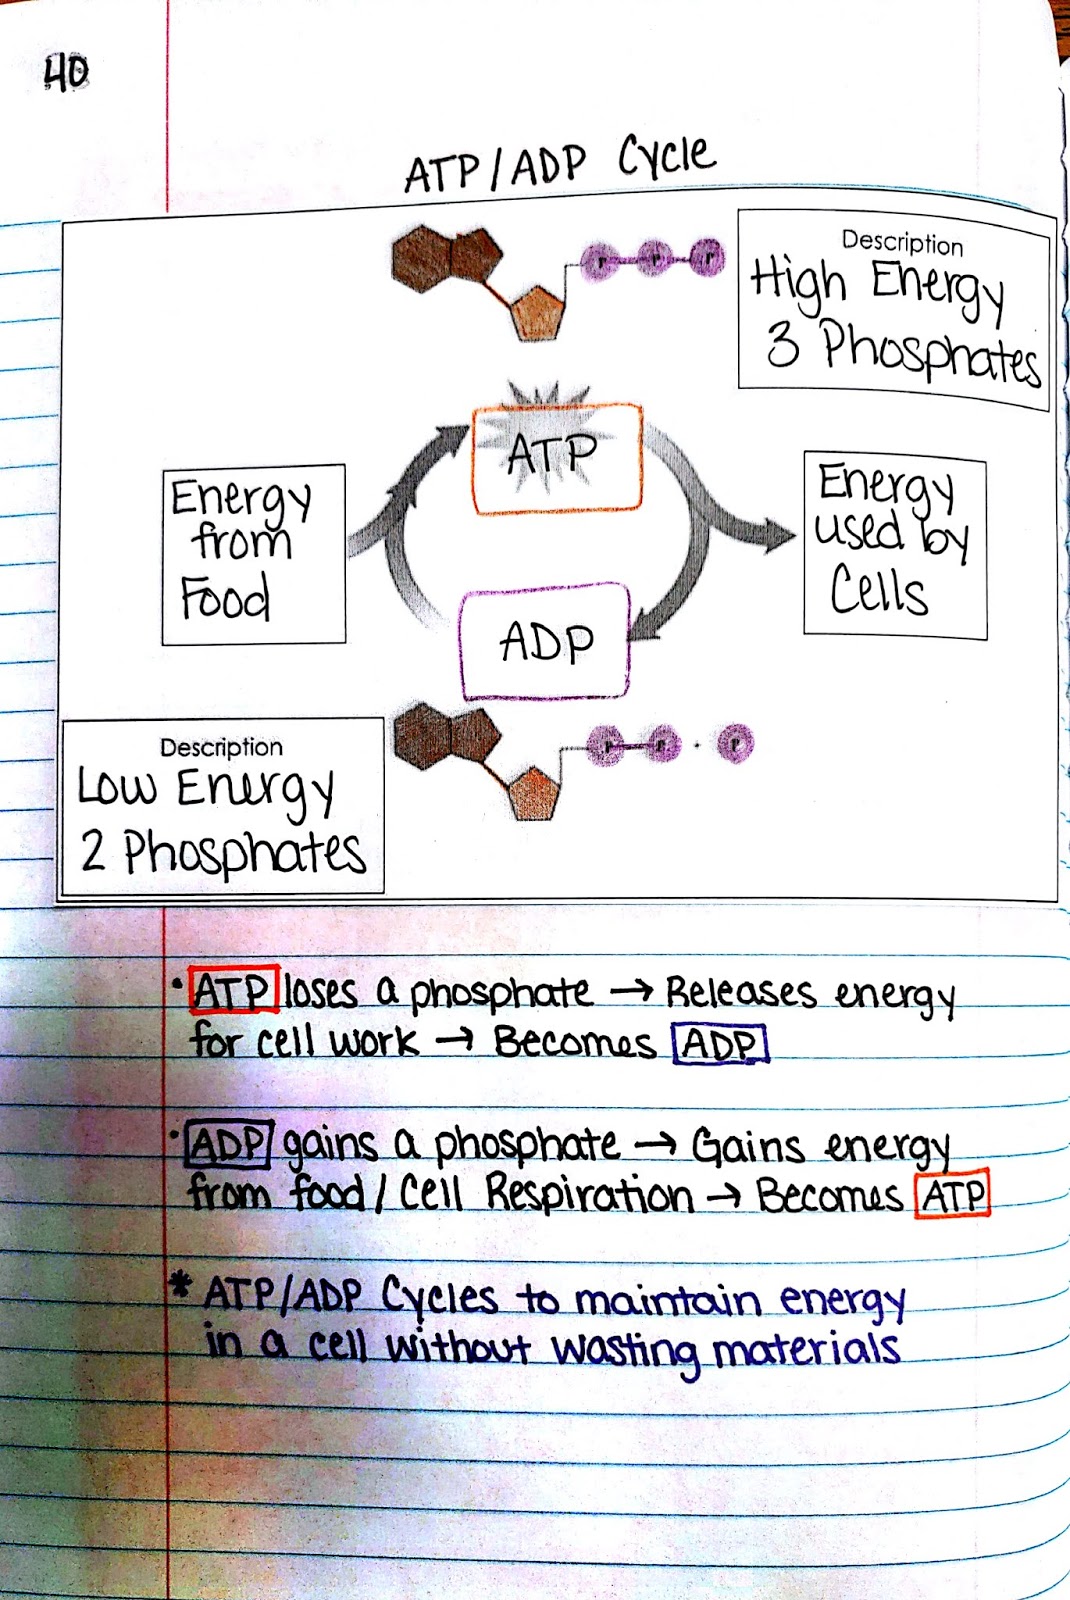 40
ATP/ADP Cycle
P P P
Description
High Energy
3 Phosphates
ATP
Energy
from
Food
Energy
used by
Cells
ADP
P P . P
Description
Low Energy
2 Phosphates
• ATP loses a phosphate → Releases energy
for cell work → Becomes ADP
• ADP gains a phosphate → Gains energy
from food/Cell Respiration → Becomes ATP
* ATP/ADP Cycles to maintain energy
in a cell without wasting materials